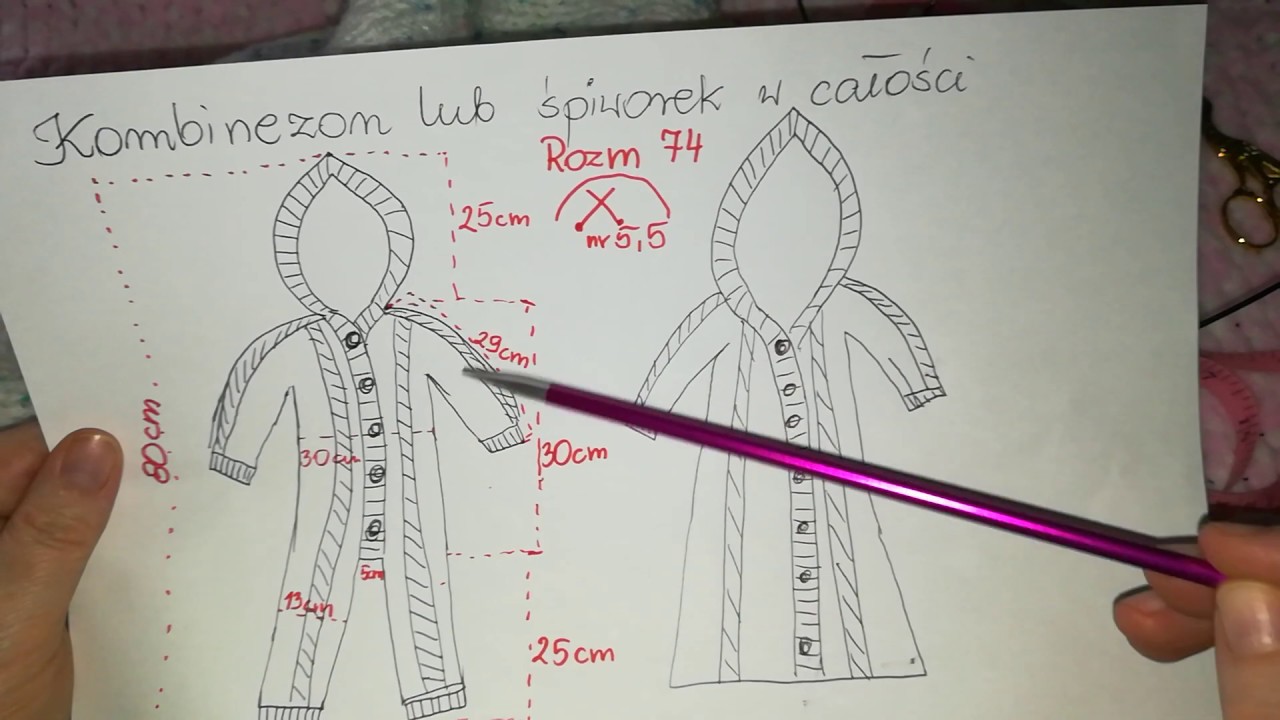 Kombinezon lub śpiworek w całości
Rozm 74
nr 5,5
25cm
29cm
80cm
30cm
30cm
5cm
13cm
25cm